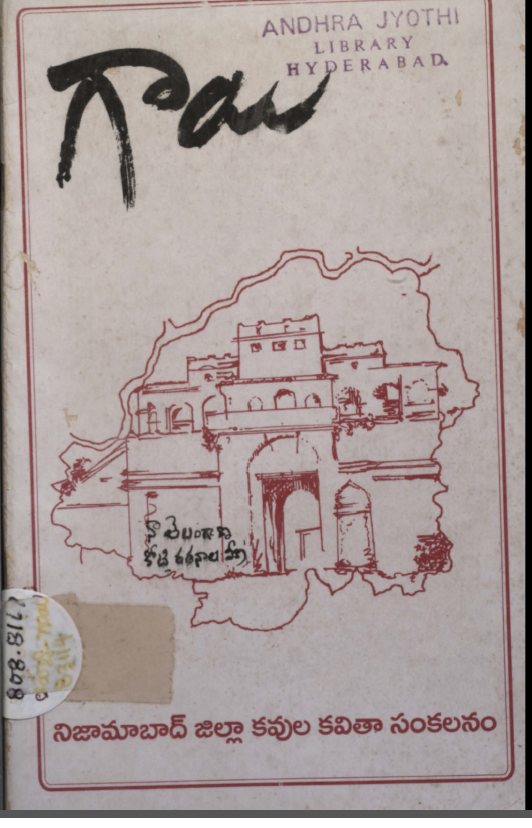 ANDHRA JYOTHI
LIBRARY
HYDERABAD.
నా తెలంగాణ
కోటి రతనాల వీణ
808.8167
నిజామాబాద్ జిల్లా కవుల కవితా సంకలనం